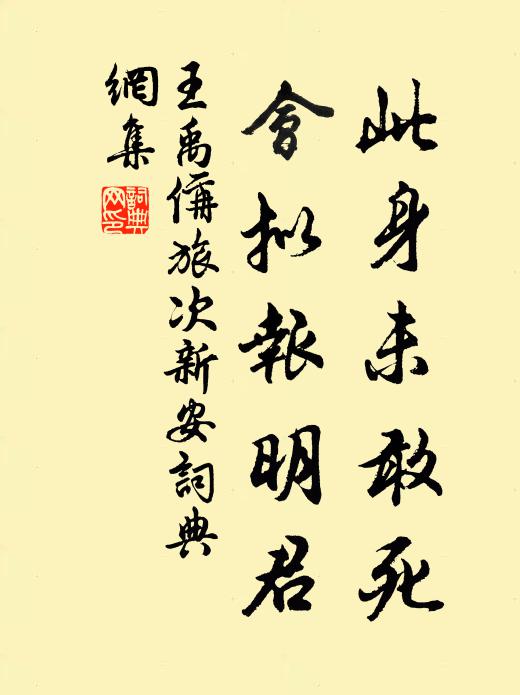 此身未敢死
會拟報明君
王禹偁旅次新安詞典
網集
詞典
网印